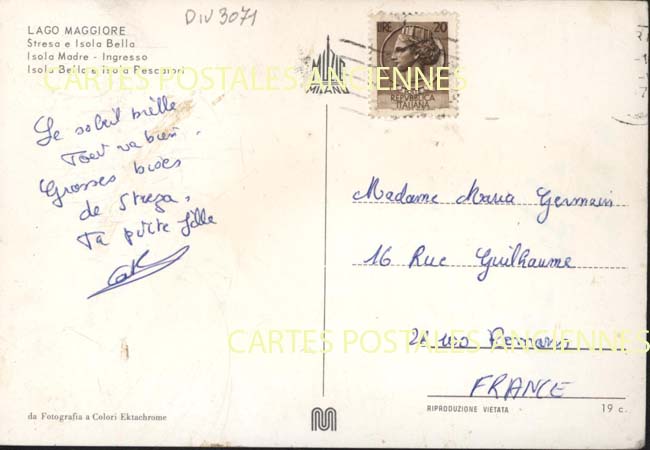 DIV 3071
LAGO MAGGIORE
Stresa e Isola Bella
Isola Madre - Ingresso
Isola Bella e Isola Pescatori
CARTES POSTALES ANCIENNES
MILANO
LIRE 20
REPVBBLICA
ITALIANA
Le soleil brille
Tout va bien.
Grosses bises
de Streza.
Ta petite fille
Madame Maria Germain
16 Rue Guilhaume
CARTES POSTALES ANCIENNES
FRANCE
da Fotografia a Colori Ektachrome
RIPRODUZIONE VIETATA
19 c.